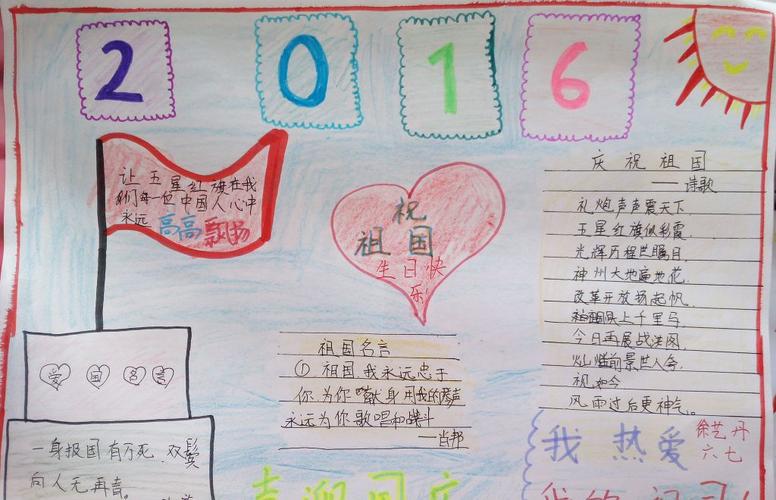 2016
让五星红旗在我
们每一位中国人心中
永远高高飘扬
祝
祖国
生日快
乐
庆祝祖国
——诗歌
礼炮声声震天下
五星红旗似彩霞
光辉历程世瞩目
神州大地遍地花
改革开放扬起帆
上千里马
今日再展战洪图
灿烂前景世人夸
视如今
风雨过后更神气。
爱国名言
祖国名言
① 祖国,我永远忠于
你,为你献身,用我的琴声
永远为你歌唱和战斗
——肖邦
一身报国有万死,双鬓
向人无再青。
喜迎国庆
我热爱
徐艺丹
六七
我的祖国